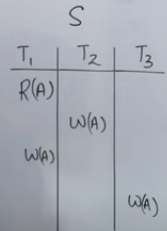 S
T₁ T₂ T₃
R(A)
W(A)
W(A)
W(A)